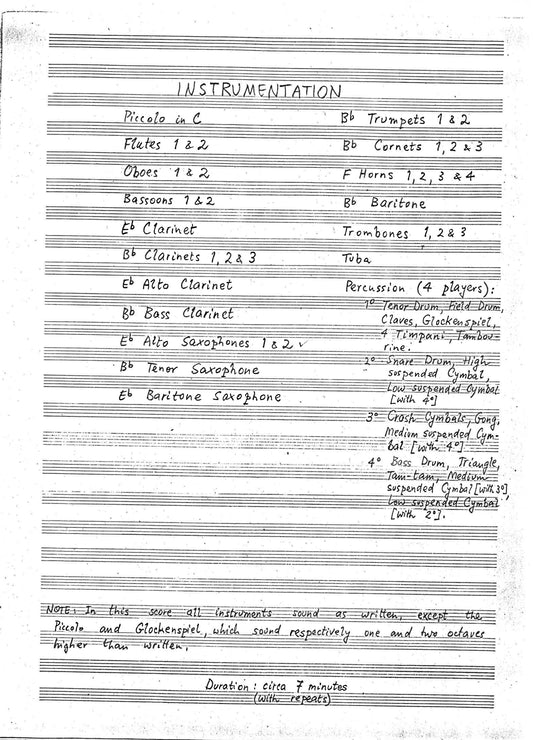 INSTRUMENTATION
Piccolo in C
Flutes 1 & 2
Oboes 1 & 2
Bassoons 1 & 2
Eb Clarinet
Bb Clarinets 1, 2 & 3
Eb Alto Clarinet
Bb Bass Clarinet
Eb Alto Saxophones 1 & 2 ✓
Bb Tenor Saxophone
Eb Baritone Saxophone
Bb Trumpets 1 & 2
Bb Cornets 1, 2 & 3
F Horns 1, 2, 3 & 4
Bb Baritone
Trombones 1, 2 & 3
Tuba
Percussion (4 players):
1º Tenor Drum, Field Drum,
Claves, Glockenspiel,
4 Timpani, Tambou-
rine.
2º Snare Drum, High
suspended Cymbal,
Low suspended Cymbal
[with 4º]
3º Crash Cymbals, Gong,
Medium suspended Cym-
bal [with 4º]
4º Bass Drum, Triangle,
Tam-tam, Medium
suspended Cymbal [with 3º],
Low suspended Cymbal
[with 2º].
NOTE: In this score all instruments sound as written, except the
Piccolo and Glockenspiel, which sound respectively one and two octaves
higher than written.
Duration: circa 7 minutes
(with repeats)